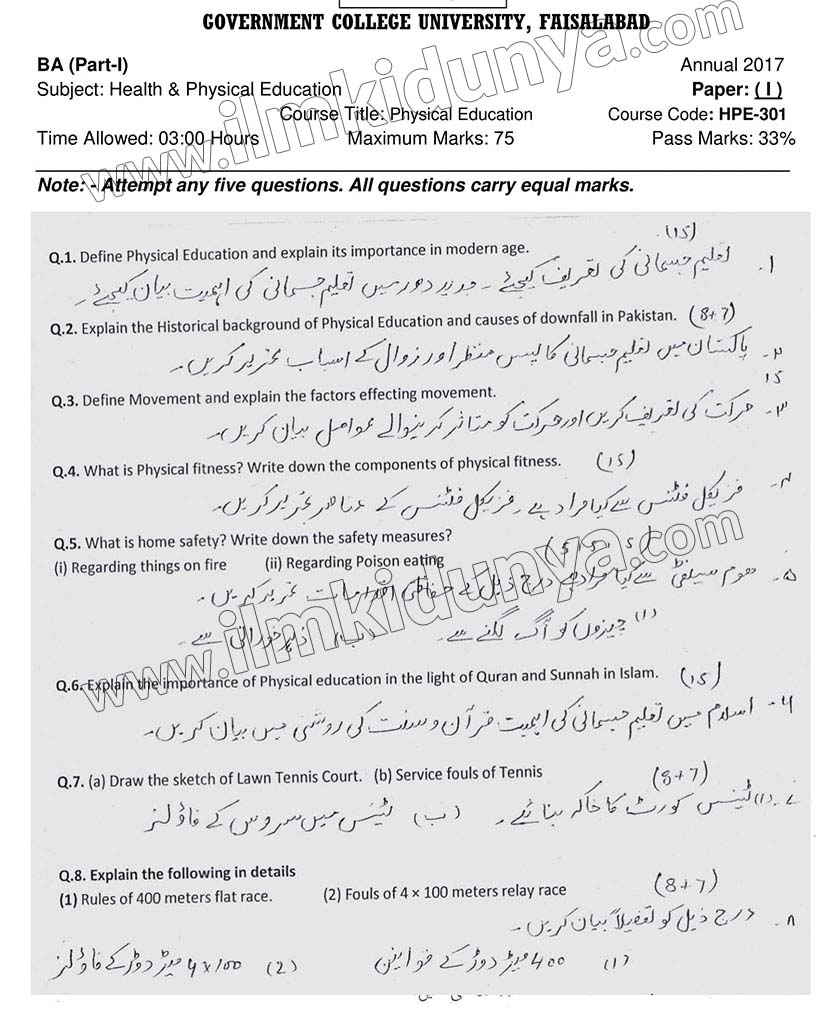 GOVERNMENT COLLEGE UNIVERSITY, FAISALABAD
BA (Part-I) Annual 2017
Subject: Health & Physical Education Paper: ( I )
Course Title: Physical Education Course Code: HPE-301
Time Allowed: 03:00 Hours Maximum Marks: 75 Pass Marks: 33%
Note: - Attempt any five questions. All questions carry equal marks.
(15)
Q.1. Define Physical Education and explain its importance in modern age.
۱۔ تعلیم جسمانی کی تعریف کیجئے ۔ جدید دور میں تعلیم جسمانی کی اہمیت بیان کیجئے ۔
Q.2. Explain the Historical background of Physical Education and causes of downfall in Pakistan. (8+7)
۲۔ پاکستان میں تعلیم جسمانی کا پس منظر اور زوال کے اسباب تحریر کریں۔
15
Q.3. Define Movement and explain the factors effecting movement.
۳۔ حرکت کی تعریف کریں اور حرکت کو متاثر کرنیوالے عوامل بیان کریں۔
Q.4. What is Physical fitness? Write down the components of physical fitness. (15)
۴۔ فزیکل فٹنس سے کیا مراد ہے ۔ فزیکل فٹنس کے عناصر تحریر کریں۔
Q.5. What is home safety? Write down the safety measures?
(i) Regarding things on fire (ii) Regarding Poison eating (5+5+5)
۵۔ ھوم سیفٹی سے کیا مراد ہے درج ذیل کے حفاظتی اقدامات تحریر کریں۔
(۱) چیزوں کو آگ لگنے سے ۔ (ب) زہر خورانی سے ۔
Q.6. Explain the importance of Physical education in the light of Quran and Sunnah in Islam. (15)
۶۔ اسلام میں تعلیم جسمانی کی اہمیت قرآن و سنت کی روشنی میں بیان کریں۔
Q.7. (a) Draw the sketch of Lawn Tennis Court. (b) Service fouls of Tennis (8+7)
۷۔ (۱) ٹینس کورٹ کا خاکہ بنائیے ۔ (ب) ٹینس میں سروس کے فاؤلز
Q.8. Explain the following in details
(1) Rules of 400 meters flat race. (2) Fouls of 4 × 100 meters relay race (8+7)
۸۔ درج ذیل کو تفصیلاً بیان کریں۔
(1) 400 میٹر دوڑ کے قوانین (2) 4x100 میٹر دوڑ کے فاؤلز
www.ilmkidunya.com
www.ilmkidunya.com